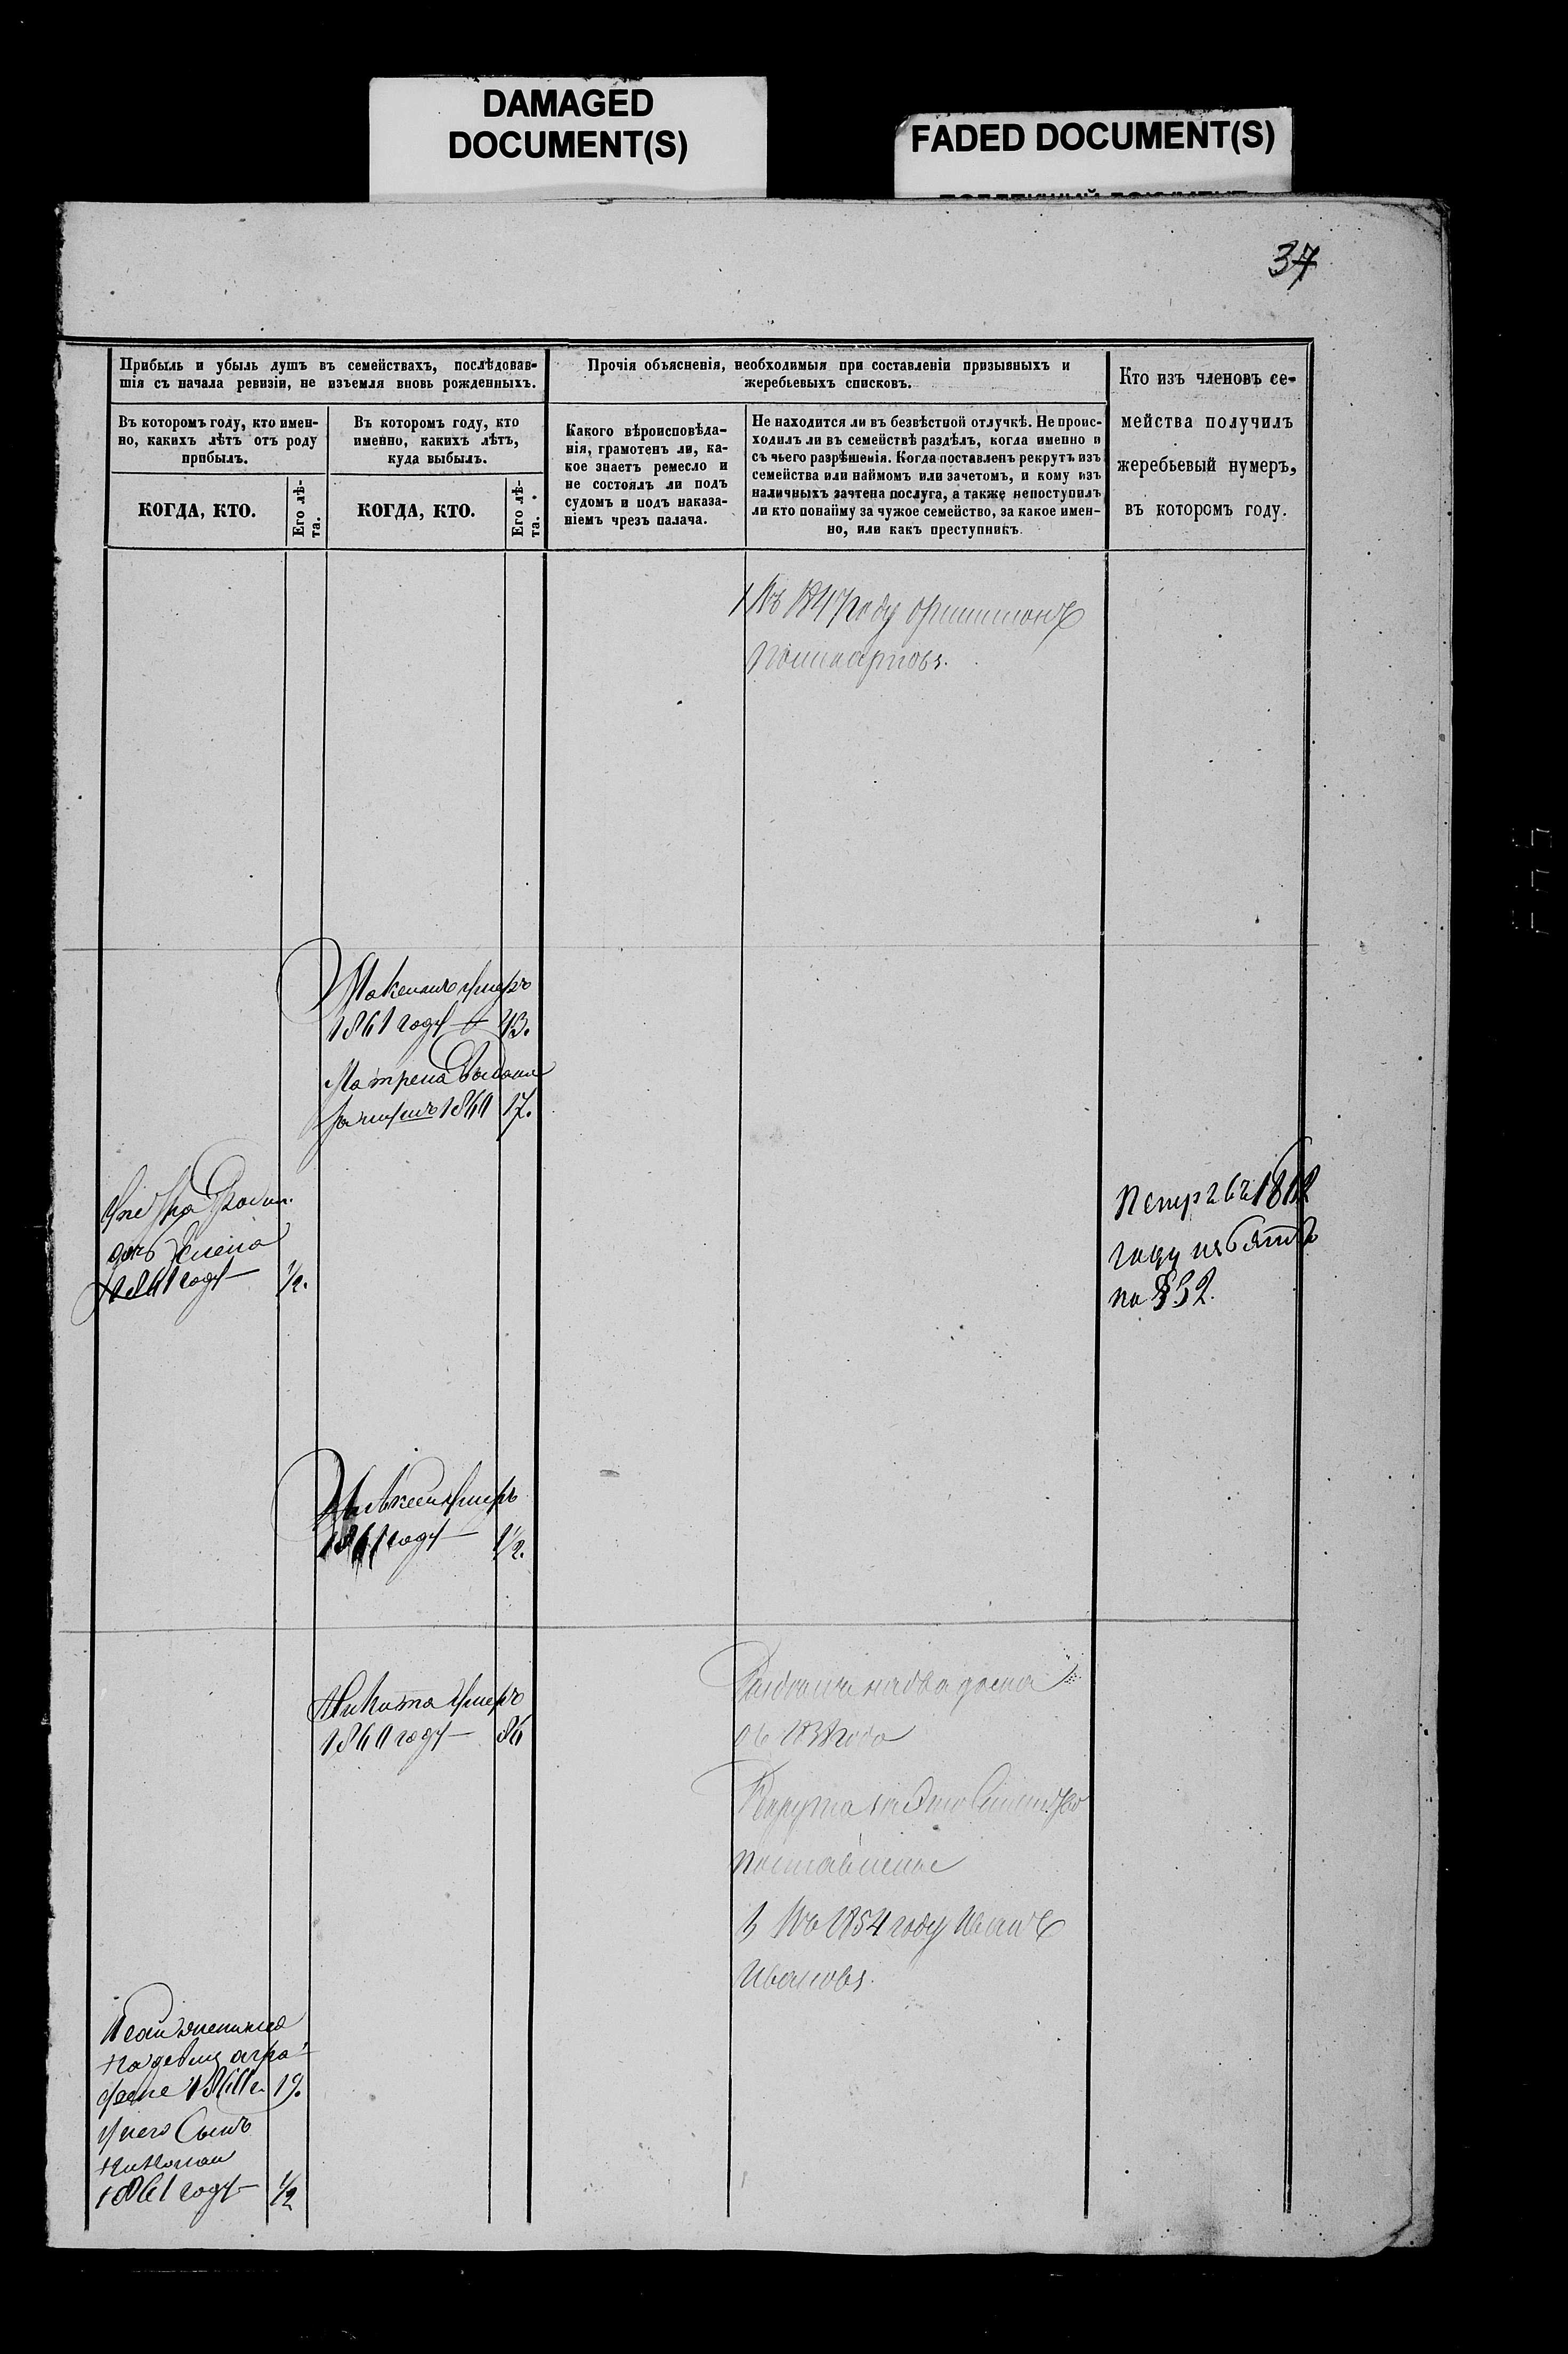 DAMAGED
DOCUMENT(S)
FADED DOCUMENT(S)
37
Прибыль и убыль душъ въ семействахъ, послѣдовав-
шія съ начала ревизіи, не изъемля вновь рожденныхъ.
Въ которомъ году, кто имен-
но, какихъ лѣтъ отъ роду
прибылъ.
КОГДА, КТО.
Его лѣ-
та.
Въ которомъ году, кто
именно, какихъ лѣтъ,
куда выбылъ.
КОГДА, КТО.
Его лѣ-
та.
Прочія объясненія, необходимыя при составленіи призывныхъ и
жеребьевыхъ списковъ.
Какого вѣроисповѣда-
нія, грамотенъ ли, ка-
кое знаетъ ремесло и
не состоялъ ли подъ
судомъ и подъ наказа-
ніемъ чрезъ палача.
Не находится ли въ безвѣстной отлучкѣ. Не проис-
ходилъ ли въ семействѣ раздѣлъ, когда именно и
съ чьего разрѣшенія. Когда поставленъ рекрутъ изъ
семейства или наймомъ или зачетомъ, и кому изъ
наличныхъ зачтена послуга, а также непоступилъ
ли кто понайму за чужое семейство, за какое имен-
но, или какъ преступникъ.
Кто изъ членовъ се-
мейства получилъ
жеребьевый нумеръ,
въ которомъ году.
1 Въ 1847 году
Поликарповъ.
умеръ
1861 году 43.
Матрена выдана
1860 17.
дочь Елена
1861 году ½.
Петръ въ 186
году
на § 32.
Алексей умеръ
1861 году 1½.
Никита умеръ
1860 году 86
на два дома
1838 года
Рекрута
поставлено
1 Въ 1854 году Иванъ
Ивановъ.
женился
на девице Агра-
фене 19.
У него сынъ
1861 году ½